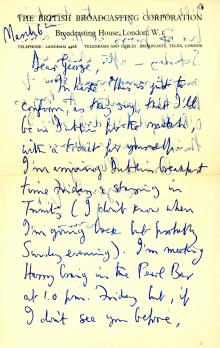 THE BRITISH BROADCASTING CORPORATION
Broadcasting House, London, W.1
TELEPHONE: LANGHAM 4468 TELEGRAMS AND CABLES: BROADCASTS, TELEX, LONDON
March 6
Dear George,
In haste. This is just to
confirm, as they say, that I'll
be in Dublin for the match,
with a ticket for yourself.
I'm arriving Dublin breakfast
time Friday & staying in
Trinity (I don't know when
I'm going back but probably
Sunday evening). I'm meeting
Harry Craig in the Pearl Bar
at 1.0 p.m. Friday but, if
I don't see you before,